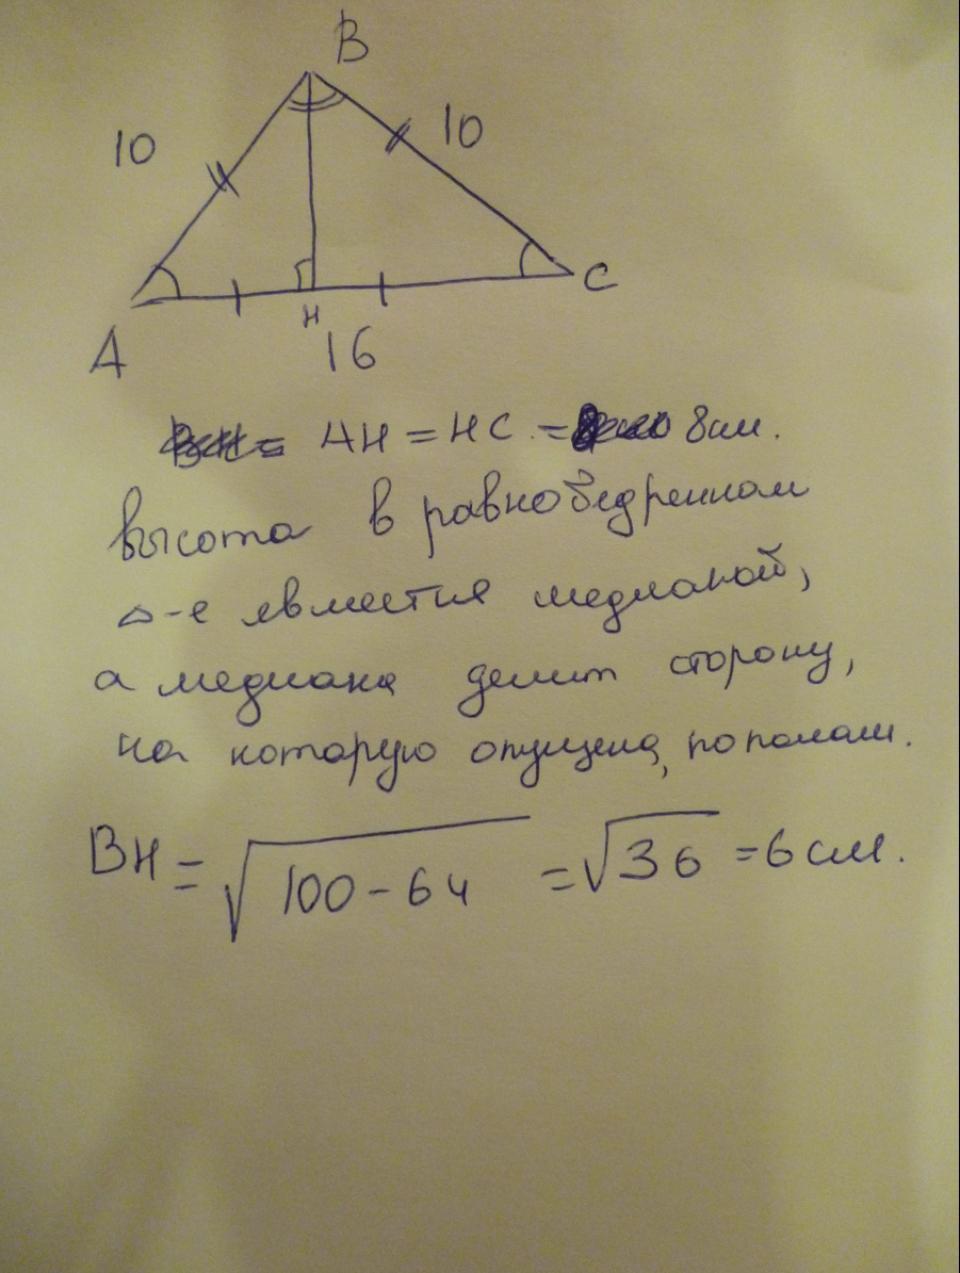 B
10
10
A
H
C
16
AH = HC = 8см.
высота в равнобедренном
△-е является медианой,
а медиана делит сторону,
на которую опущена, пополам.
BH = √100-64 = √36 = 6 см.